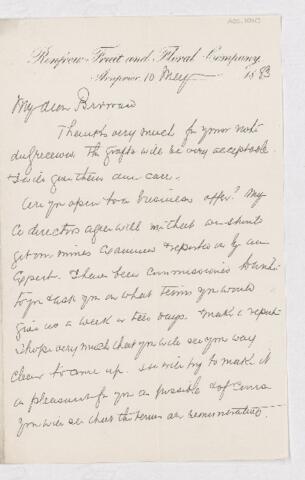 Renfrew Fruit and Floral Company.
Arnprior 10 May 1893
My dear Brown
Thanks very much for your note
duly received. The grafts will be very acceptable.
I will give them due care.
Are you open to a business offer? My
Co directors agree with me that we should
get our mines examined & reported on by an
Expert. I have been commissioned to write
to you & ask you on what terms you would
give us a week or ten days & make a report
I hope very much that you will see your way
clear to come up. We will try to make it
as pleasant for you as possible & of course
you will see that the terms are remunerative.